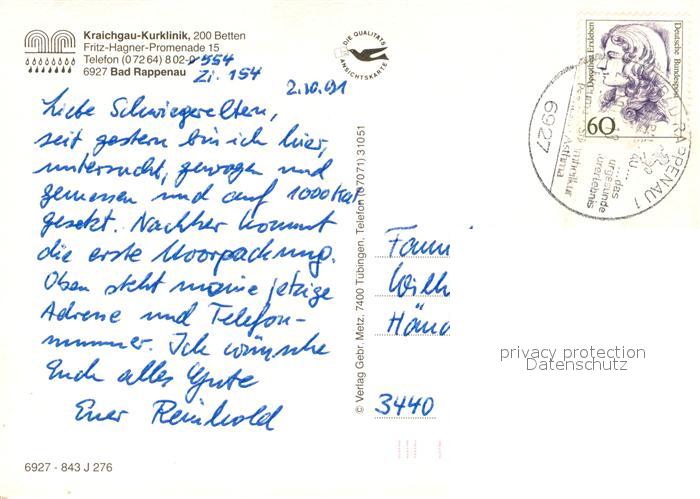 Kraichgau-Kurklinik, 200 Betten
Fritz-Hagner-Promenade 15
Telefon (0 72 64) 8 02-0 554
6927 Bad Rappenau
Zi. 154
2.10.91
Liebe Schwiegereltern,
seit gestern bin ich hier,
untersucht, gewogen und
gemessen und auf 1000 Kal
gesetzt. Nachher kommt
die erste Moorpackung.
Oben steht meine jetzige
Adresse und Telefon-
nummer. Ich wünsche
Euch alles Gute
Euer Reinhold
6927 - 843 J 276
DIE QUALITÄTS
ANSICHTSKARTE
© Verlag Gebr. Metz, 7400 Tübingen, Telefon (07071) 31051
Dorothea Erxleben
Deutsche Bundespost
60
6927
RAPPENAU 1
das
urgesunde
urerlebnis
Asthma
3440
privacy protection
Datenschutz